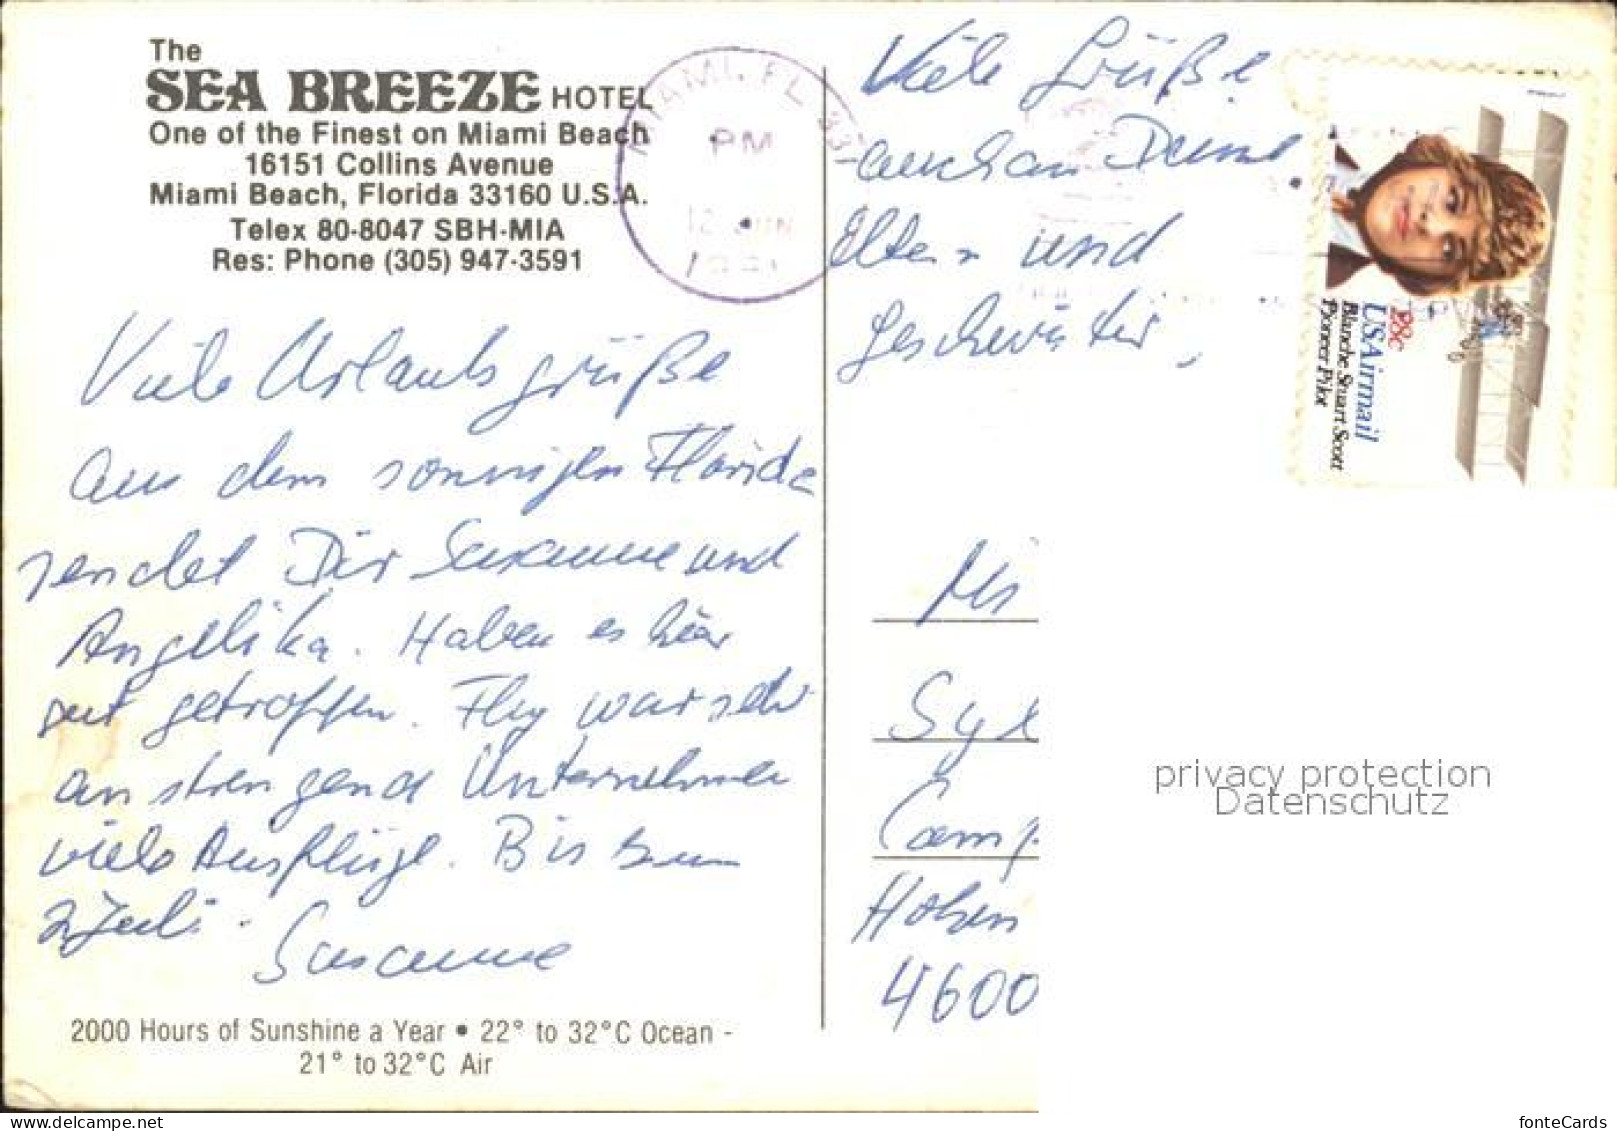 The
SEA BREEZE HOTEL
One of the Finest on Miami Beach
16151 Collins Avenue
Miami Beach, Florida 33160 U.S.A.
Telex 80-8047 SBH-MIA
Res: Phone (305) 947-3591
Viele Urlaubsgrüße
aus dem sonnigen Florida
sendet Dir Susanne und
Angelika. Haben es hier
gut getroffen. Flug war sehr
anstrengend Unternehmen
viele Ausflüge. Bis zum
2 Juli.
Susanne
2000 Hours of Sunshine a Year • 22° to 32°C Ocean -
21° to 32°C Air
MIAMI, FL 33
PM
12 JUN
Viele Grüße
auch an Deine
Eltern und
Geschwister,
USAirmail
28c
Blanche Stuart Scott
Pioneer Pilot
Camp
Hohen
4600
privacy protection
Datenschutz
delcampe.net
fonteCards